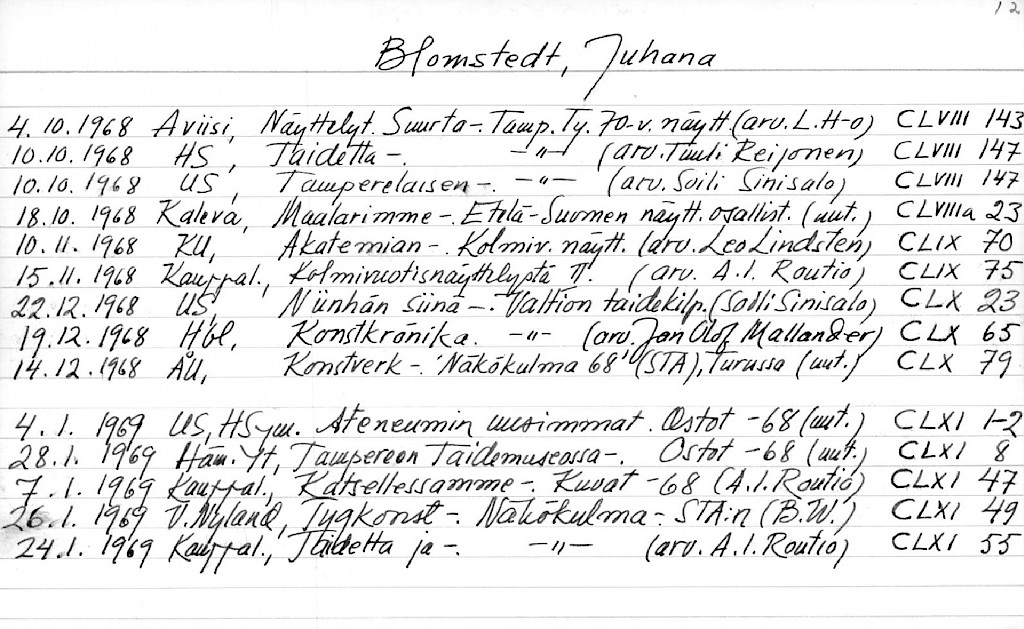 12
Blomstedt, Juhana
4.10.1968 Aviisi, Näyttelyt. Suurta-. Tamp.Ty. 70-v. näytt. (arv. L.H-o) CLVIII 143
10.10.1968 HS, Taidetta -. -"- (arv. Tuuli Reijonen) CLVIII 147
10.10.1968 US, Tamperelaisen -. -"- (arv. Soili Sinisalo) CLVIII 147
18.10.1968 Kaleva, Maalarimme -. Etelä-Suomen näytt. osallist. (uut.) CLVIIIa 23
10.11.1968 KU, Akatemian -. Kolmiv. näytt. (arv. Leo Lindsten) CLIX 70
15.11.1968 Kauppal., Kolmivuotisnäyttelystä II. (arv. A.I. Routio) CLIX 75
22.12.1968 US, Niinhän siinä -. Valtion taidekilp. (Soili Sinisalo) CLX 23
19.12.1968 Hbl, Konstkrönika. -"- (arv. Jan Olof Mallander) CLX 65
14.12.1968 ÅU, Konstverk -. 'Näkökulma 68' (STA), Turussa (uut.) CLX 79
4.1.1969 US, HS ym. Ateneumin uusimmat. Ostot -68 (uut.) CLXI 1-2
28.1.1969 Häm. Yt, Tampereen Taidemuseossa -. Ostot -68 (uut.) CLXI 8
7.1.1969 Kauppal., Katsellessamme -. Kuvat -68 (A.I. Routio) CLXI 47
26.1.1969 V. Nyland, Tygkonst -. Näkökulma -. STA:n (B.W.) CLXI 49
24.1.1969 Kauppal., Taidetta ja -. -"- (arv. A.I. Routio) CLXI 55